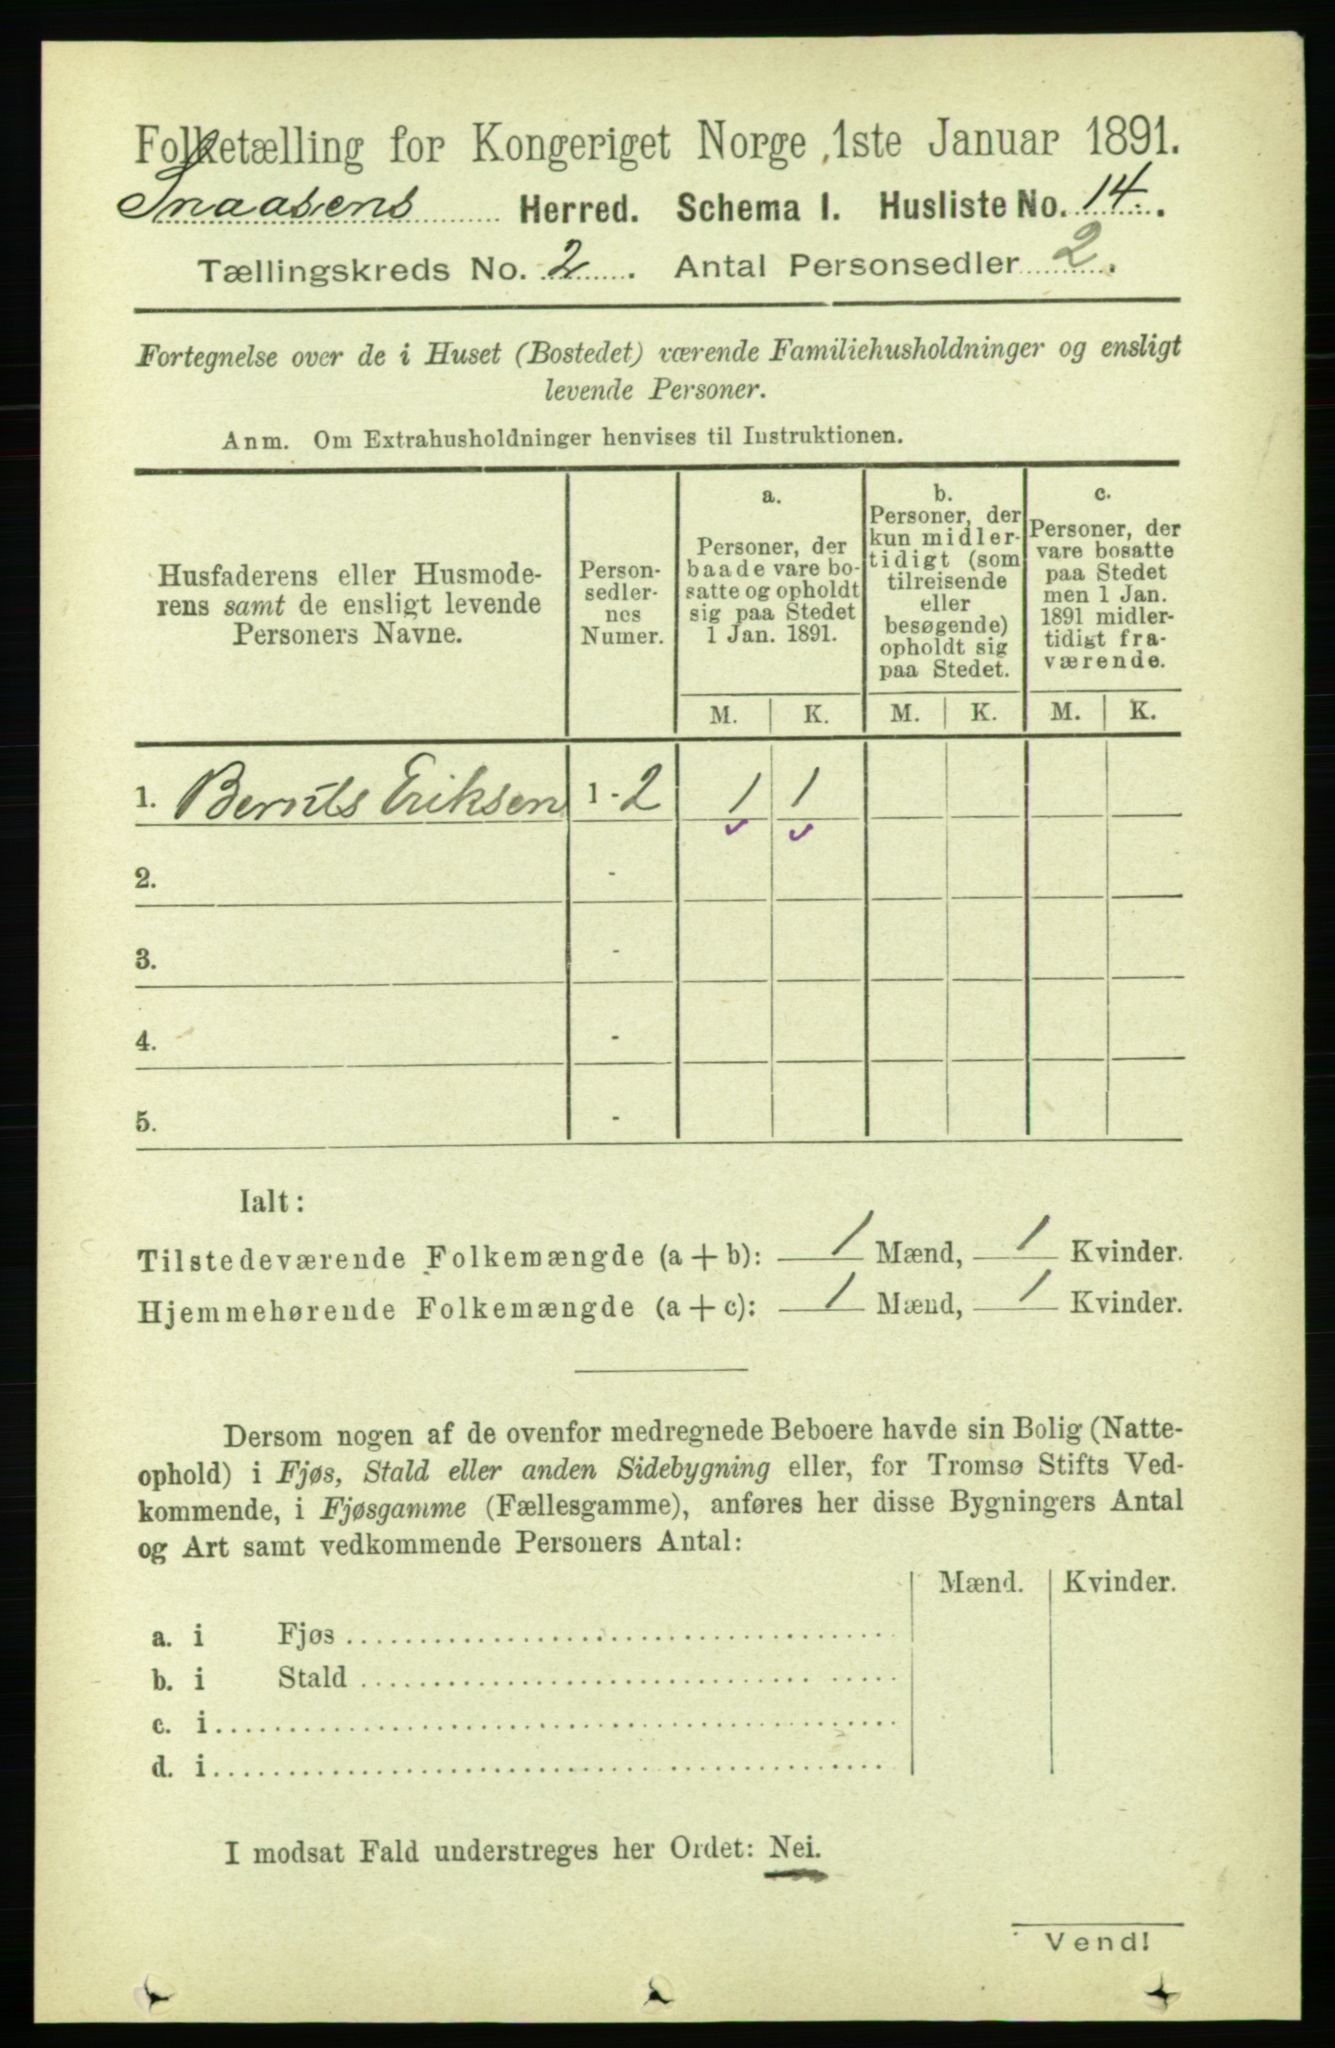 Folketælling for Kongeriget Norge 1ste Januar 1891.
Snaasens Herred. Schema I. Husliste No. 14.
Tællingskreds No. 2. Antal Personsedler 2.
Fortegnelse over de i Huset (Bostedet) værende Familiehusholdninger og ensligt
levende Personer.
Anm. Om Extrahusholdninger henvises til Instruktionen.
Husfaderens eller Husmode-
rens samt de ensligt levende
Personers Navne.
Person-
sedler-
nes
Numer.
a.
Personer, der
baade vare bo-
satte og opholdt
sig paa Stedet
1 Jan. 1891.
b.
Personer, der
kun midler-
tidigt (som
tilreisende
eller
besøgende)
opholdt sig
paa Stedet.
c.
Personer, der
vare bosatte
paa Stedet
men 1 Jan.
1891 midler-
tidigt fra-
værende.
M. K. M. K. M. K.
1. Bernts Eriksen 1 - 2 1 1
2. -
3. -
4. -
5. -
Ialt:
Tilstedeværende Folkemængde (a + b): 1 Mænd, 1 Kvinder.
Hjemmehørende Folkemængde (a + c): 1 Mænd, 1 Kvinder.
Dersom nogen af de ovenfor medregnede Beboere havde sin Bolig (Natte-
ophold) i Fjøs, Stald eller anden Sidebygning eller, for Tromsø Stifts Ved-
kommende, i Fjøsgamme (Fællesgamme), anføres her disse Bygningers Antal
og Art samt vedkommende Personers Antal:
Mænd. Kvinder.
a. i Fjøs
b. i Stald
c. i
d. i
I modsat Fald understreges her Ordet: Nei.
Vend!